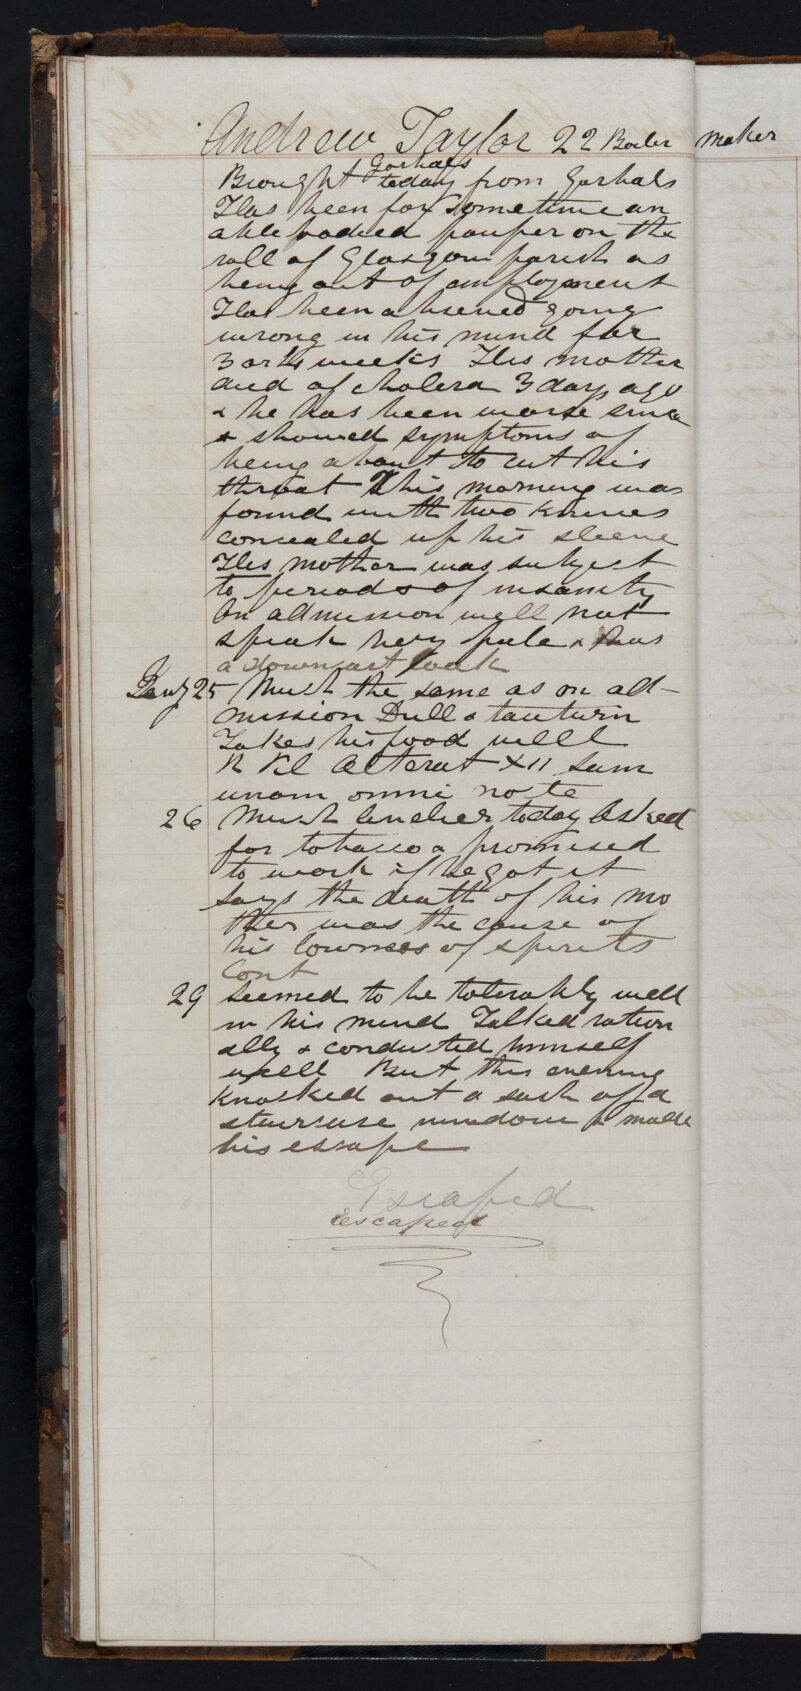 Andrew Taylor 22 Boiler maker
Gorbals
Brought today from Gorbals
Has been for sometime an
able bodied pauper on the
roll of Glasgow parish as
being out of employment
Has been observed going
wrong in his mind for
3 or 4 weeks His mother
died of cholera 3 days ago
& he has been worse since
& showed symptoms of
being about to cut his
throat This morning was
found with two knives
concealed up his sleeve
His mother was subject
to periods of insanity
On admission will not
speak very pale & has
a downcast look
Jany 25 Much the same as on ad-
mission Dull & taciturn
Takes his food well
R Pil Alterat XII Sum
unam omni nocte
26 Much livelier today Asked
for tobacco & promised
to work if he got it
Says the death of his mo
ther was the cause of
his lowness of spirits
Cont
29 Seemed to be tolerably well
in his mind Talked ration
ally & conducted himself
well But this evening
knocked out a sash of a
staircase window & made
his escape
Escaped
Escaped